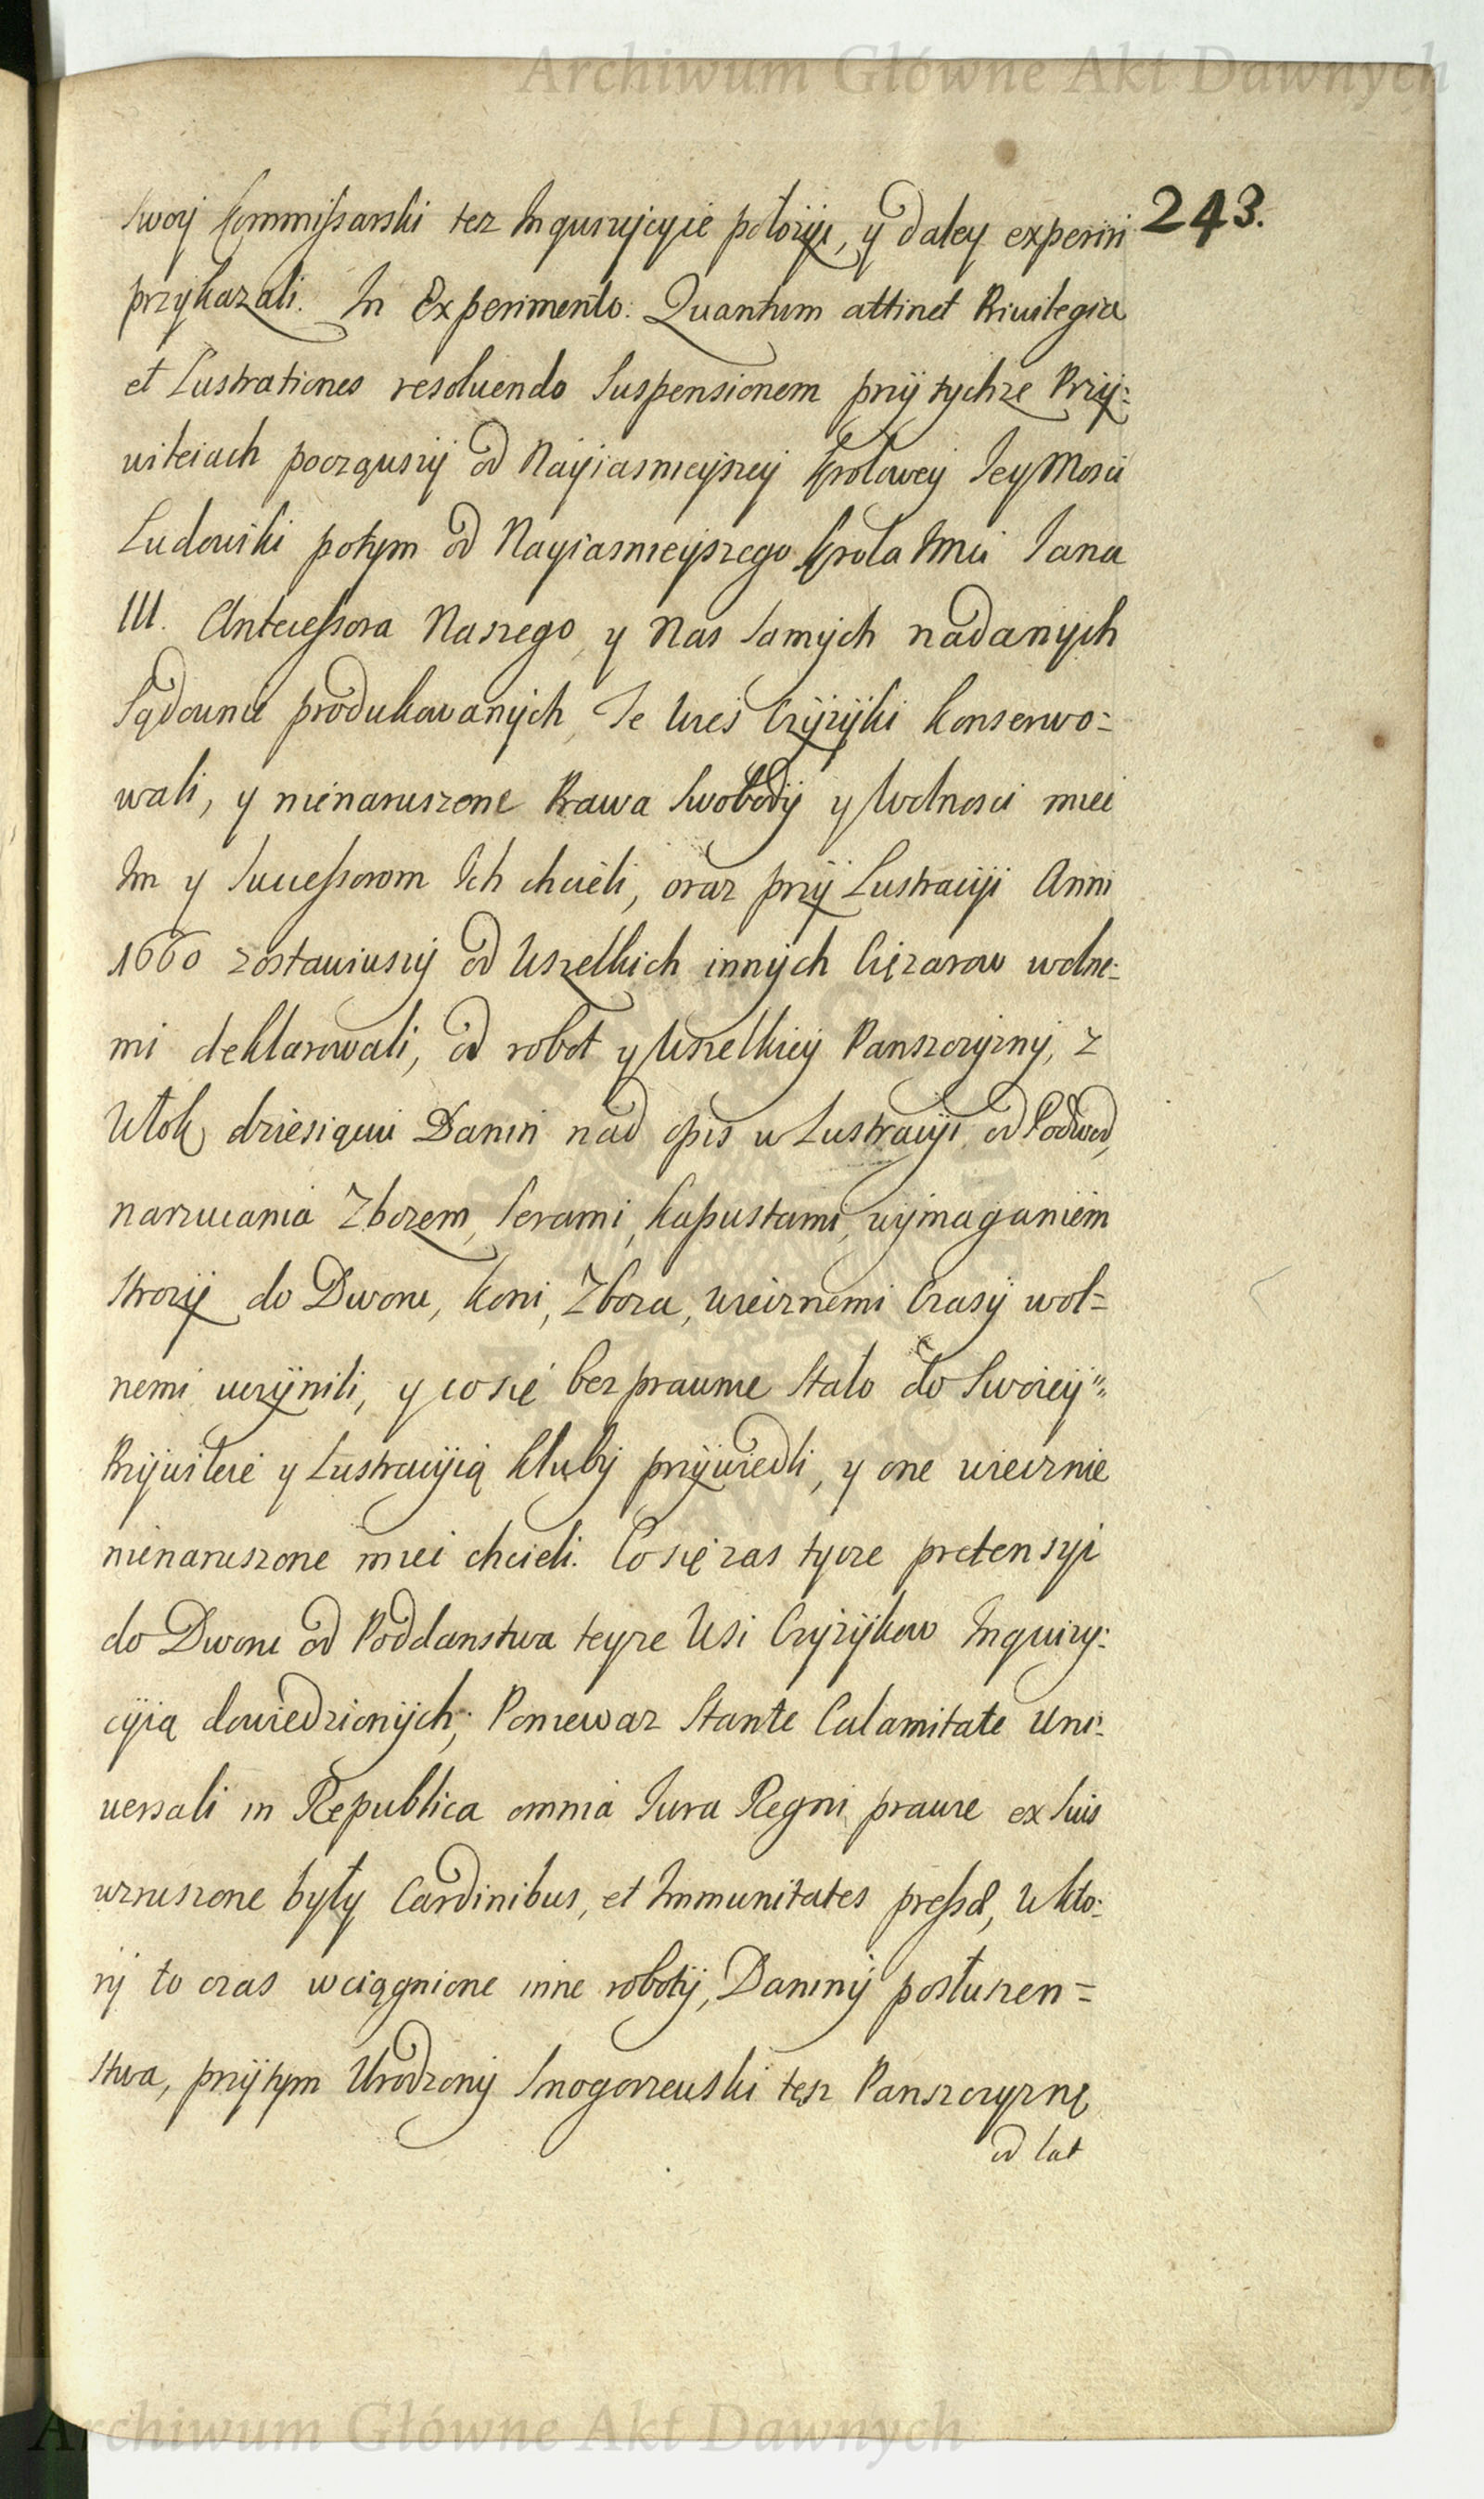 Archiwum Główne Akt Dawnych
243.
Swoy Kommissarski tez Inquizycyie połozyc, y daley experiri
przykazali. In Experimento: Quantum attinet Priuilegia
et Lustrationes resoluendo Suspensionem przy tychze Przy:
uileiach począwszy od Nayiasnieyszey Krolowey Jey Mosci
Ludowiki potym od Nayiasnieyszego Krola Jmci Jana
III. Antecessora Naszego, y Nas Samych nadanych
Sądownie produkowanych, Te wieś Czyzyki konserwo=
wali, y nienaruszone Prawa Swobody y Wolnosci miec
Im y Successorom Ich chcieli, oraz przy Lustracyi Anni
1660 zostawiwszy od wszelkich innych Cięzarow wolne:
mi deklarowali, od robot y wszelkiey Panszczyzny, z
Włok dziesiąciu Danin nad opis w Lustracyi, od Podwod,
narzucania Zbozem, Serami, kapustami, wymaganiem
Strozy do Dworu, koni, Zboza, wiecznemi Czasy wol=
nemi uczynili, y co się bezprawnie Stalo do Swoiey
Przywileie y Lustracyią kluby przywiedli, y one wiecznie
nienaruszone miec chcieli. Co się zas tycze pretensyi
do Dworu od Poddanstwa teyze Wsi Czyzykow Inquizy:
cyią dowiedzionych; Poniewaz Stante Calamitate Uni:
uersali in Republica omnia Jura Regni, prawie ex suis
wzruszone były Cardinibus, et Immunitates pressæ, w kto:
ry to czas wciągnione inne roboty, Daniny posłuszen=
stwa, przytym Urodzony Snogorzewski tesz Panszczyznę
od lat
Archiwum Główne Akt Dawnych